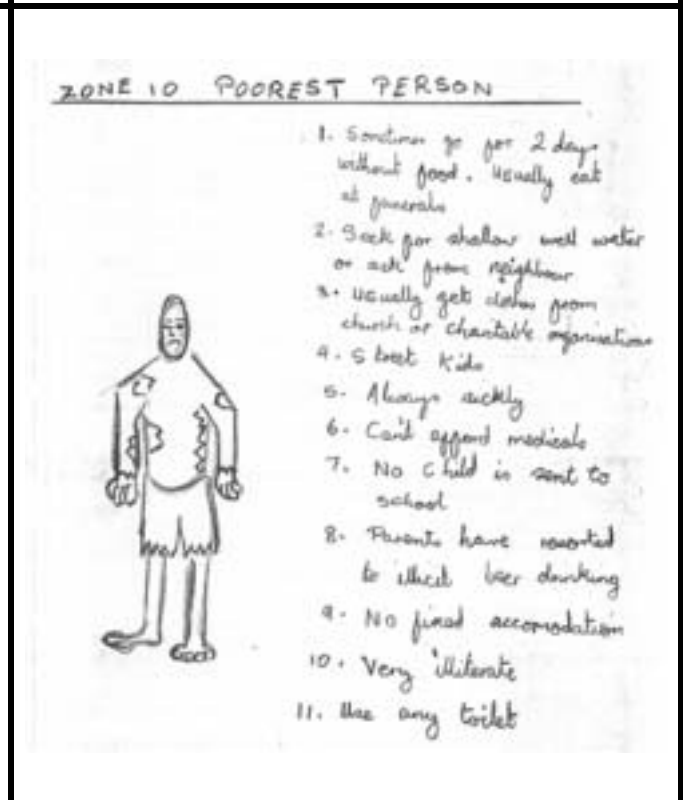 ZONE 10 POOREST PERSON
1. Sometimes go for 2 days
without food. Usually eat
at funerals
2. Seek for shallow well water
or ask from neighbour
3. Usually gets clothes from
church or charitable organisations
4. Street Kids
5. Always sickly
6. Can't afford medicals
7. No Child is sent to
school
8. Parents have resorted
to illicit beer drinking
9. No fixed accomodation
10. Very illiterate
11. Use any toilet